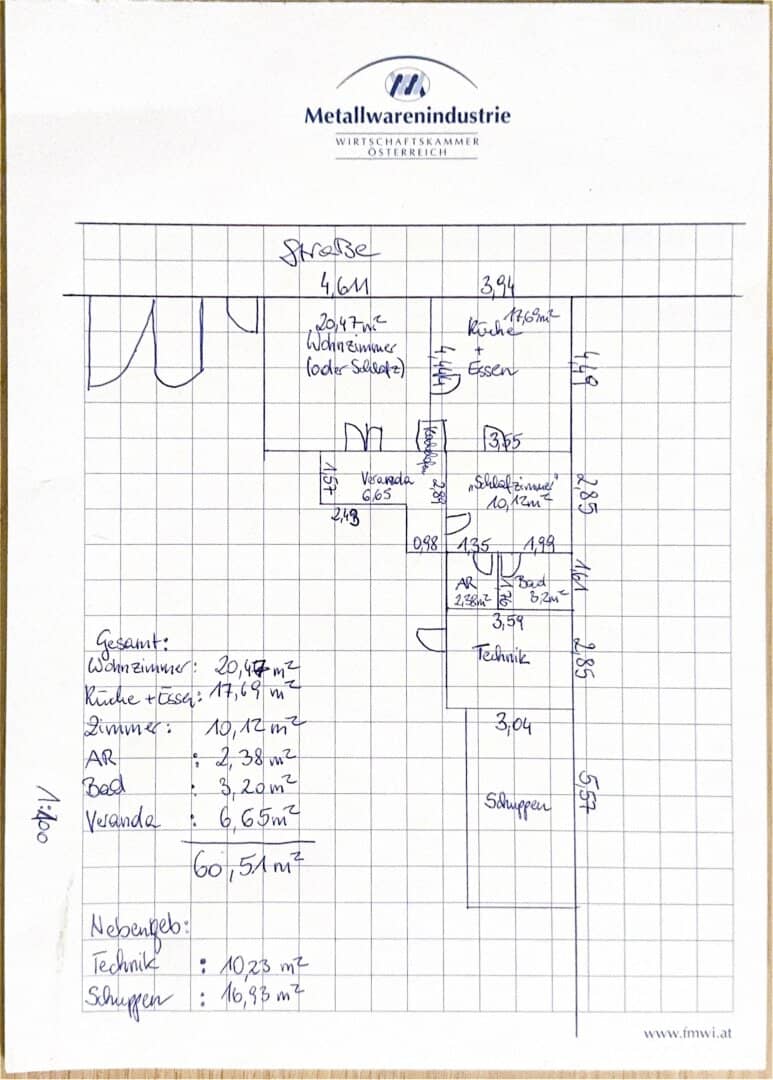 Metallwarenindustrie
WIRTSCHAFTSKAMMER
ÖSTERREICH
Straße
4,611
3,94
20,47m²
Wohnzimmer
(oder Schlafz)
17,69m²
Küche
+
Essen
4,444
4,49
3,55
1,57
Veranda
6,65
2,43
2,89
"Schlafzimmer"
10,12m²
2,85
0,98
1,35
1,99
1,61
AR
2,38m²
1,76
Bad
3,2m²
3,59
Technik
2,85
3,04
Schuppen
5,57
Gesamt:
Wohnzimmer: 20,47 m²
Küche + Essen: 17,69 m²
Zimmer: 10,12 m²
AR : 2,38 m²
Bad : 3,20 m²
Veranda : 6,65 m²
60,51 m²
1:100
Nebengeb:
Technik : 10,23 m²
Schuppen : 16,93 m²
www.fmwi.at